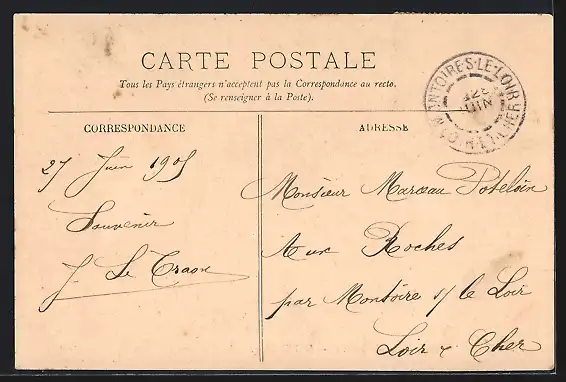 CARTE POSTALE
Tous les Pays étrangers n'acceptent pas la Correspondance au recto.
(Se renseigner à la Poste).
CORRESPONDANCE
27 Juin 1905
Souvenir
J. Le
ADRESSE
Monsieur Marceau Poteloin
Aux Roches
par Montoire s/ le Loir
Loir & Cher
28
JUIN
S-LE-LOIR